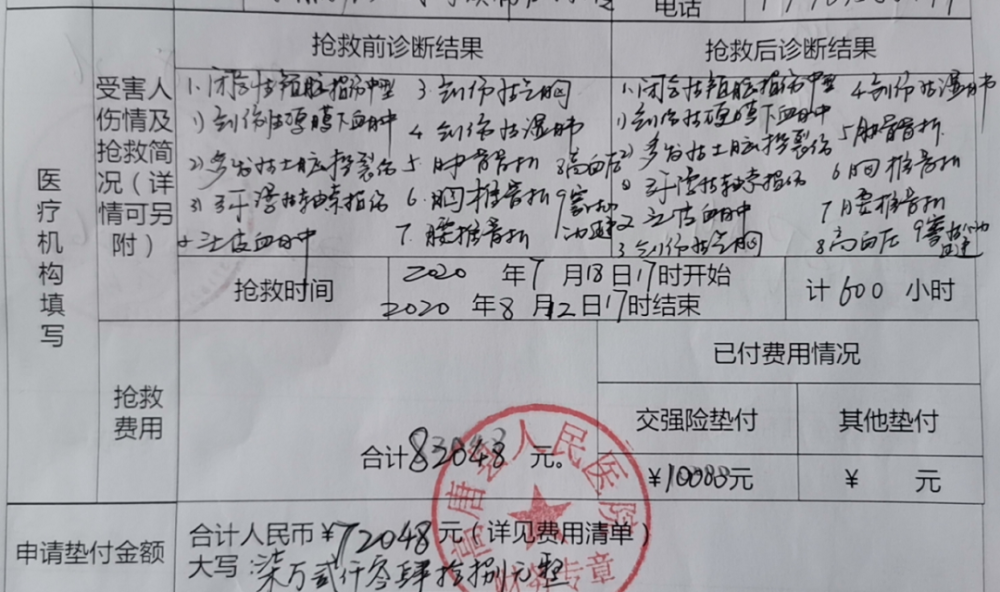 电话
抢救前诊断结果 抢救后诊断结果
医疗机构填写
受害人伤情及抢救简况（详情可另附）
1. 闭合性颅脑损伤中型 3. 创伤性气胸
1) 创伤性硬膜下血肿 4. 创伤性湿肺
2) 多发性大脑挫裂伤 5 肋骨骨折 8高血压
3) 弥漫性轴索损伤 6. 胸椎骨折
2 头皮血肿 7. 腰椎骨折
1. 闭合性颅脑损伤中型 4 创伤性湿肺
1) 创伤性硬膜下血肿 5肋骨骨折
2) 多发性大脑挫裂伤 6 胸椎骨折
3) 弥漫性轴索损伤 7 腰椎骨折
2 头皮血肿
3 创伤性气胸 8高血压
抢救时间
2020 年7月18日17时开始
2020 年8月12日17时结束
计600 小时
抢救费用
合计82048 元。
已付费用情况
交强险垫付 其他垫付
￥10000元 ￥ 元
申请垫付金额
合计人民币￥72048元（详见费用清单）
大写：柒万贰仟零肆拾捌元整
高唐县人民医院
财务专章